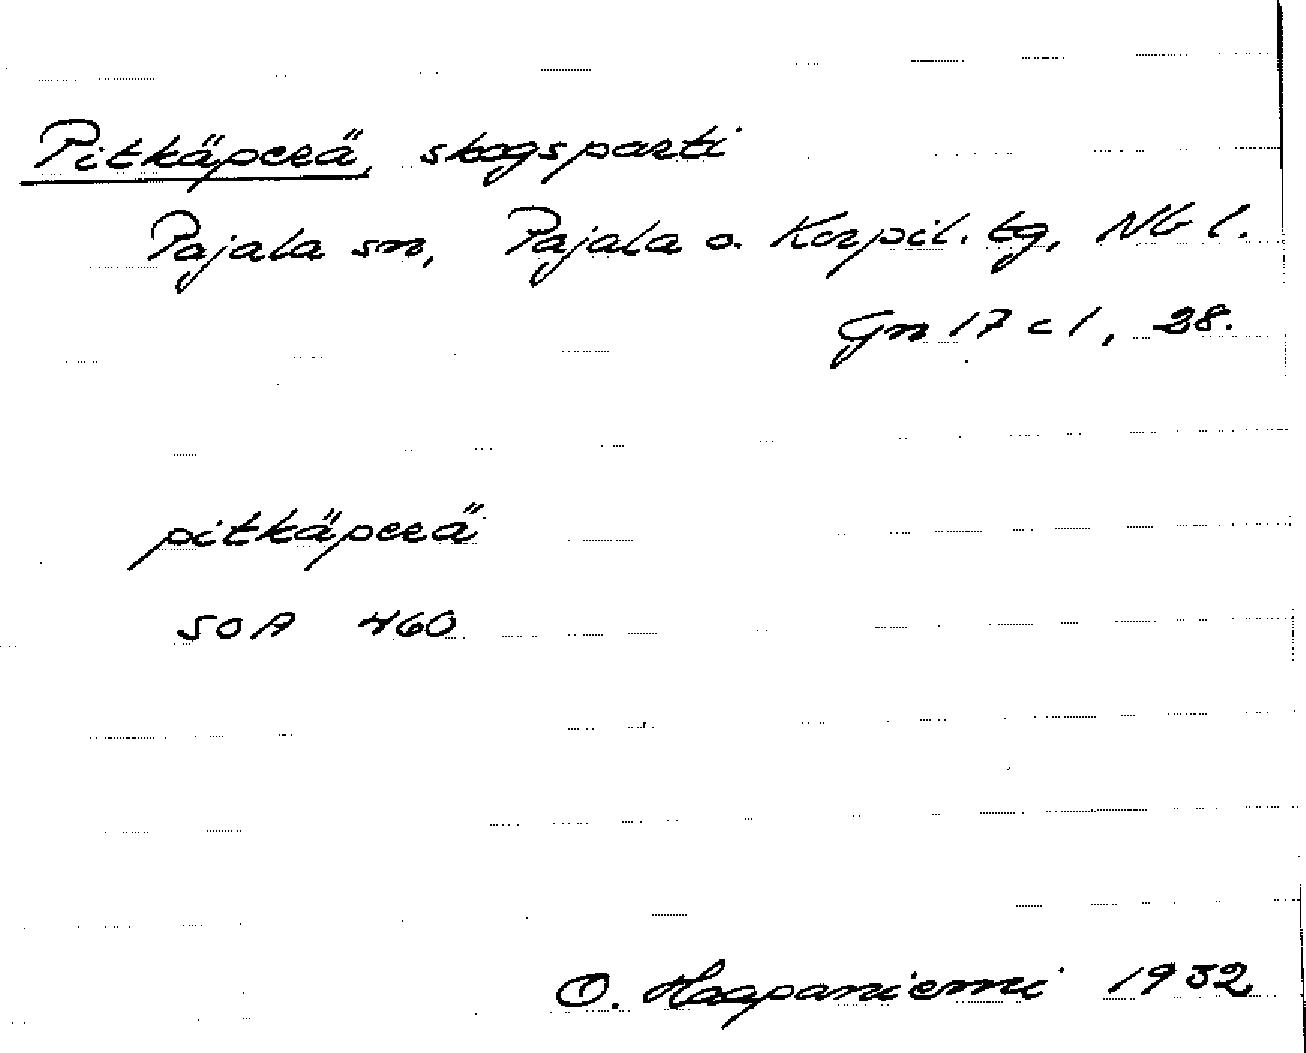 Pitkäperä, skogsparti
Pajala sn, Pajala o. Korpil. tg, NB l.
Gn 17 c 1, 28.
pitkäperä
SOA 460
O. Haapaniemi 1932